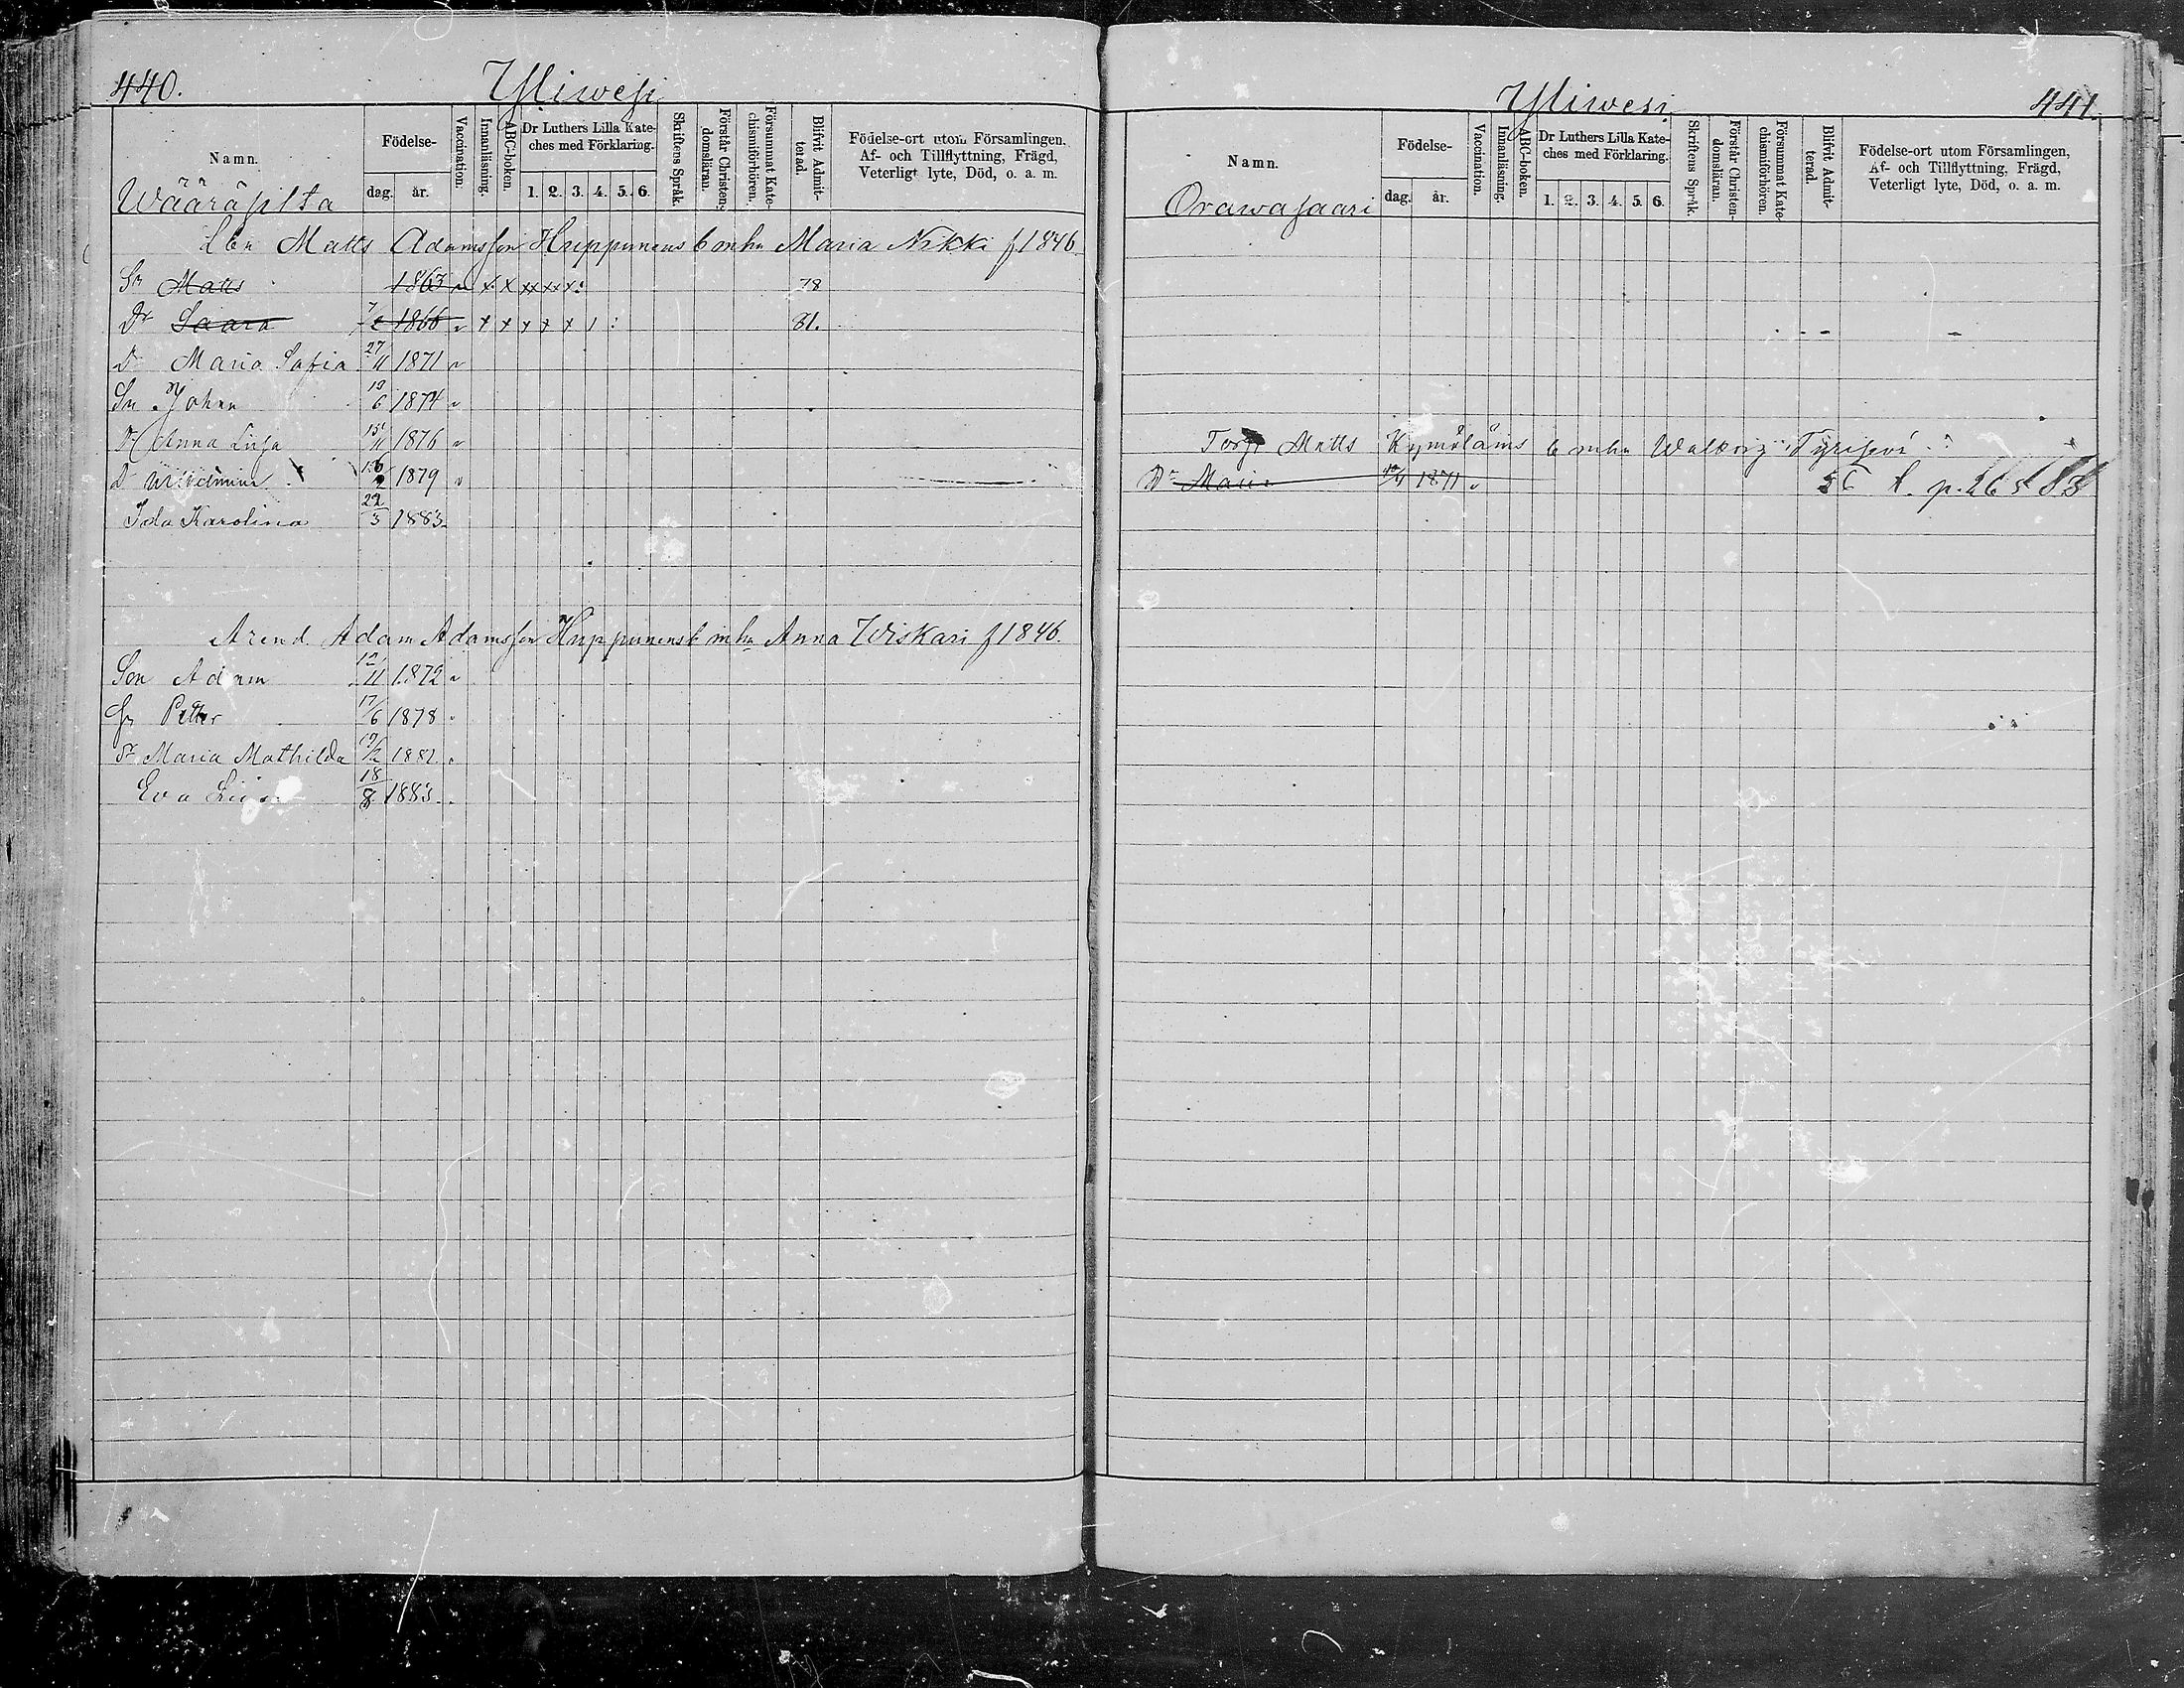 440.
Yliwesi
Namn.
Födelse-
dag. år.
Vaccination.
Innanläsning.
ABC-boken.
Dr Luthers Lilla Kate-
ches med Förklaring.
1. 2. 3. 4. 5. 6.
Skriftens Språk.
Förstår Christen-
domsläran.
Försummat Kate-
chismiförhören.
Blifvit Admit-
terad.
Födelse-ort utom Församlingen,
Af- och Tillflyttning, Frägd,
Veterligt lyte, Död, o. a. m.
Wääräpilta
Lbn Matts Adamsson Huppunens b mhu Maria Nikki f 1846
Sn Matts 1863 x x xx xx x: 78
Dr Saara 7/2 1866 x x x x x 81.
Dr Maria Sofia 27/11 1871
Sn Johan 19/6 1874
Dr Anna Liisa 15/11 1876
Dr Wilhelmina 1879
Ida Karolina 22/3 1883
Arend. Adam Adamsson Huppunens b mhu Anna Wiskari f 1846.
Son Adam 12/11 1872
Sn Petter 17/6 1878
Dr Maria Mathilda 19/2 1882
Eva Liisa 18/8 1883
Yliwesi
441
Namn.
Födelse-
dag. år.
Vaccination.
Innanläsning.
ABC-boken.
Dr Luthers Lilla Kate-
ches med Förklaring.
1. 2. 3. 4. 5. 6.
Skriftens Språk.
Förstår Christen-
domsläran.
Försummat Kate-
chismiförhören.
Blifvit Admit-
terad.
Födelse-ort utom Församlingen,
Af- och Tillflyttning, Frägd,
Veterligt lyte, Död, o. a. m.
Orawasaari
Torp Matts Kymäläins b mhu Walborg
Dr Maria 1871